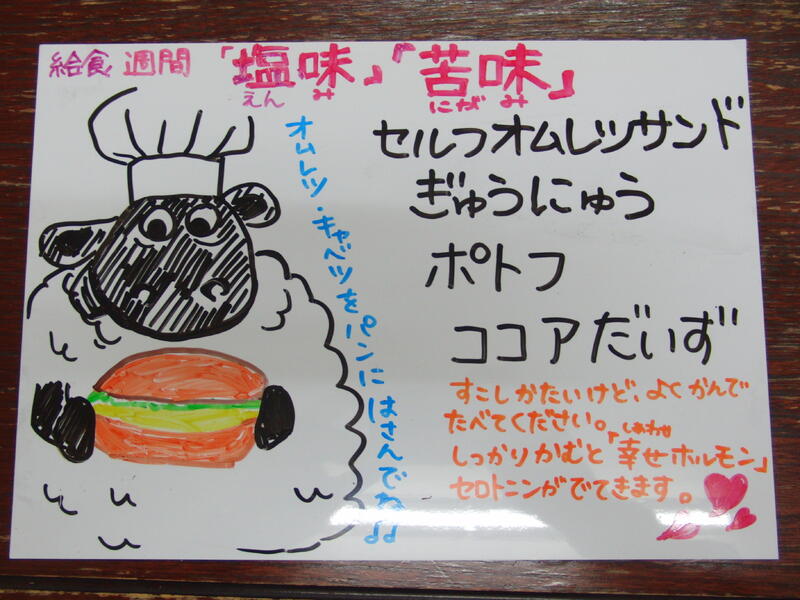 給食週間「塩味」「苦味」
えんみ にがみ
セルフオムレツサンド
ぎゅうにゅう
ポトフ
ココアだいず
オムレツ・キャベツをパンにはさんでね♩♩
すこしかたいけど、よくかんで
たべてください。
しあわせ
しっかりかむと「幸せホルモン」
セロトニンがでてきます。